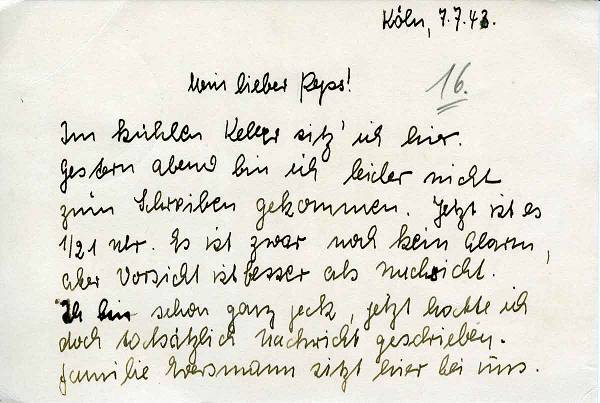 Köln, 7.7.43.
Mein lieber Peps!
16.
Im kühlen Keller sitz' ich hier.
Gestern abend bin ich leider nicht
zum Schreiben gekommen. Jetzt ist es
1/21 uhr. Es ist zwar noch kein Alarm,
aber Vorsicht ist besser als Nachsicht.
Ich bin schon ganz jeck, jetzt hatte ich
doch tatsätzlich Nachricht geschrieben.
Familie Ewersmann sitzt hier bei uns.